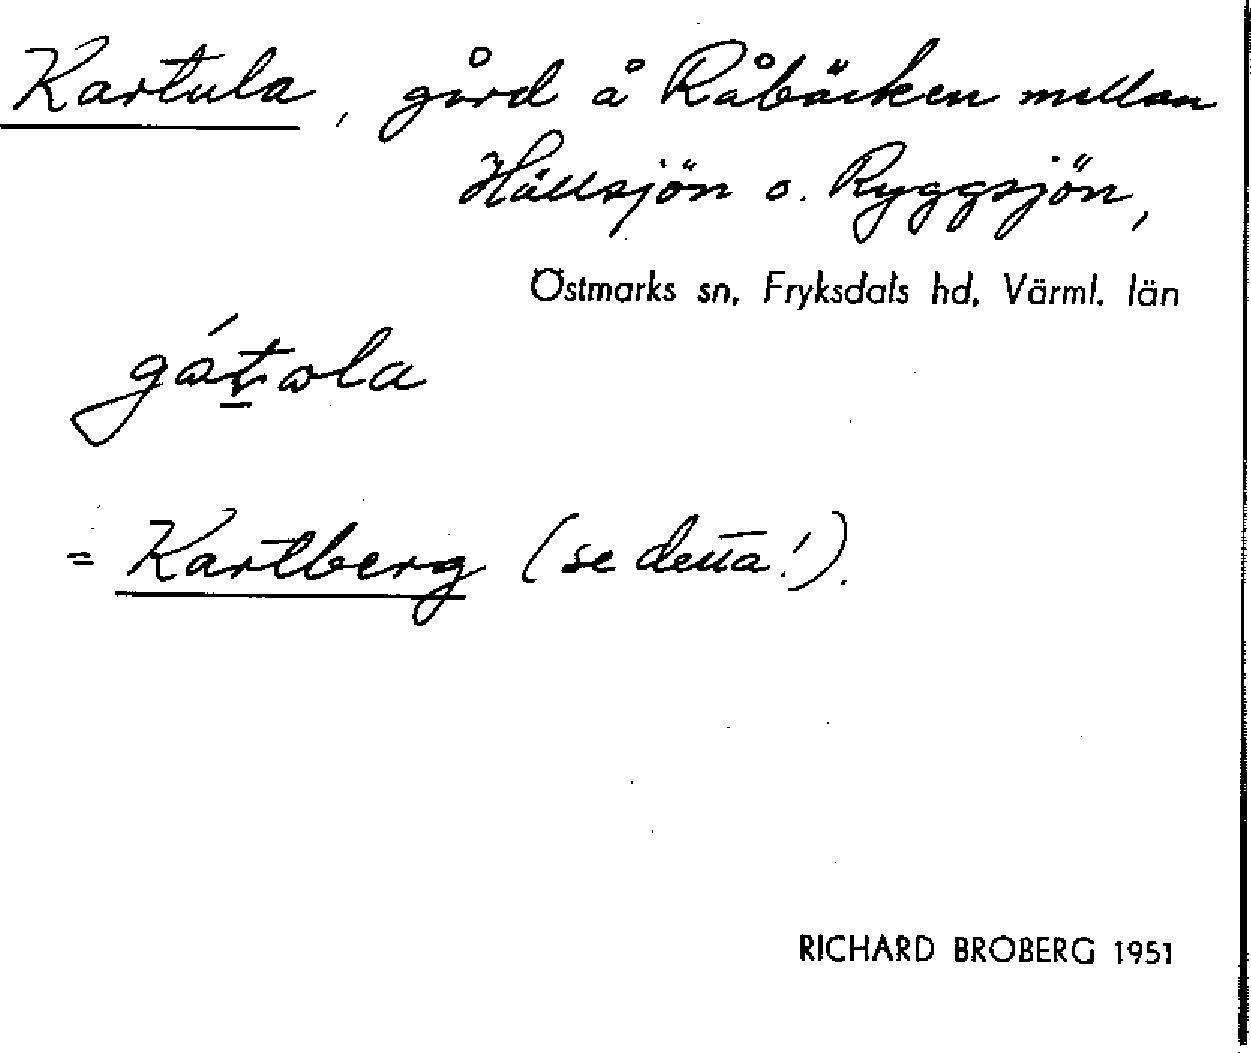 Kartula, gård å Råbäcken mellan
Hällsjön o. Ryggsjön,
Östmarks sn, Fryksdals hd, Värml. län
= Kartberg (se detta!).
RICHARD BROBERG 1951